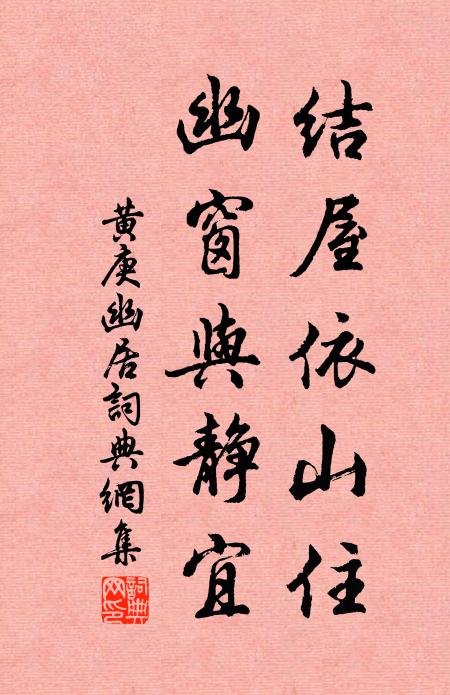 结屋依山住
幽窗與静宜
黄庚幽居詞典網集
詞典网印